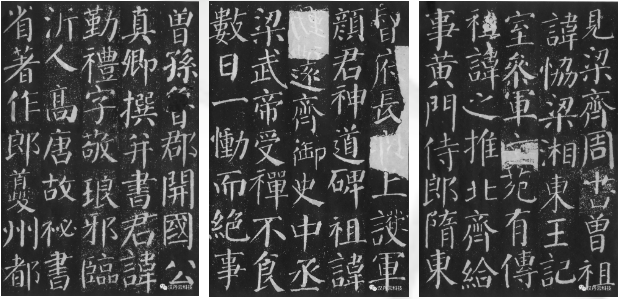 曾孫魯郡開國公
真卿撰并書君諱
勤禮字敬琅邪臨
沂人高唐故祕書
省著作郎夔州都
督府長上護軍
顏君神道碑祖諱
遠齊御史中丞
梁武帝受禪不食
數日一慟而絕事
見梁齊周書曾祖
諱協梁湘東王記
室參軍苑有傳
祖諱之推北齊給
事黃門侍郎隋東